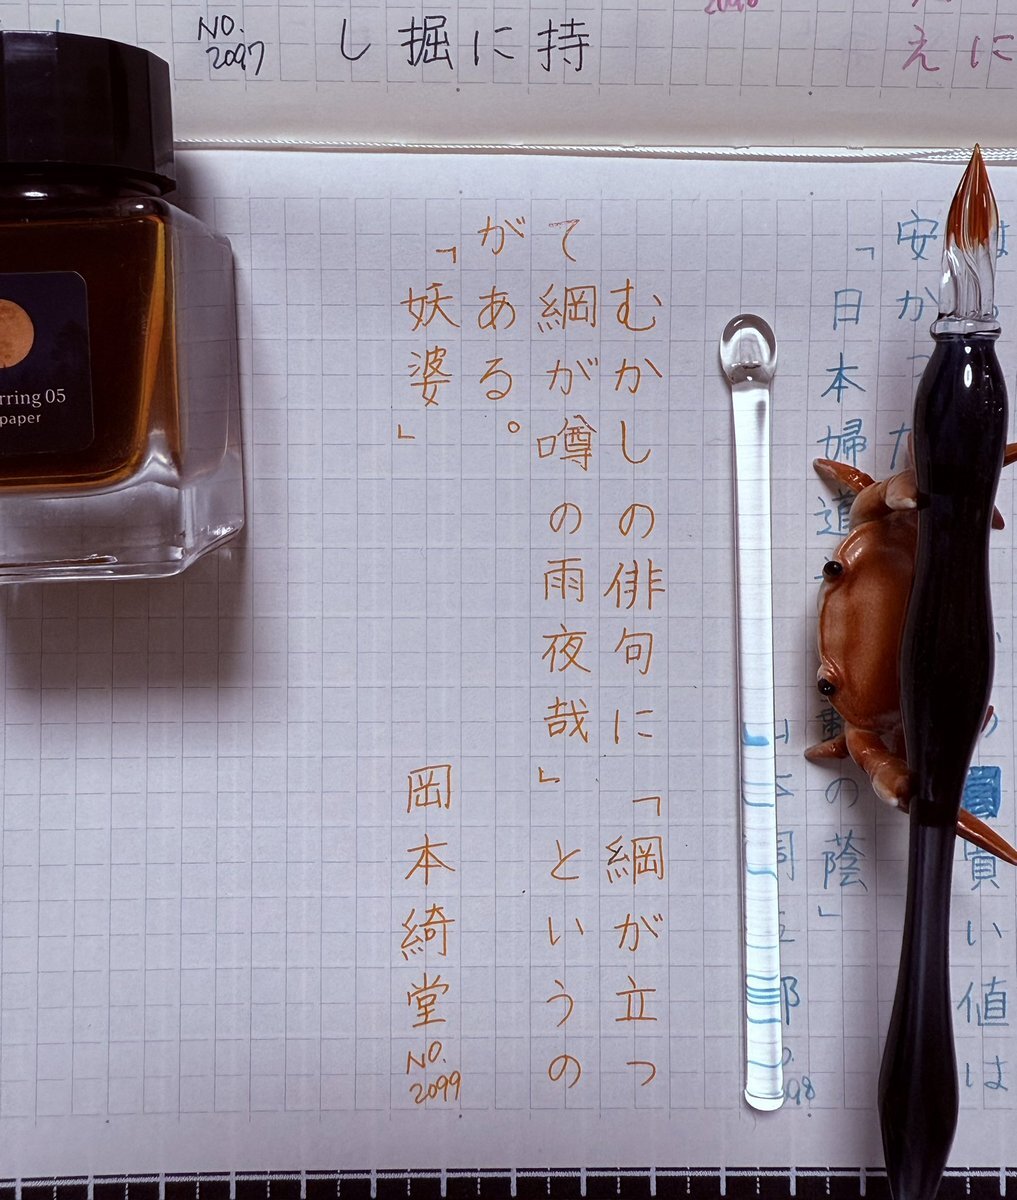 に
え
持
に
掘
し
NO.
2097
買い値は
安か
「日本婦道
の蔭」
むかしの俳句に「綱が立っ
て綱が噂の雨夜哉」というの
がある。
「妖婆」
岡本綺堂
NO.
2099
05
paper